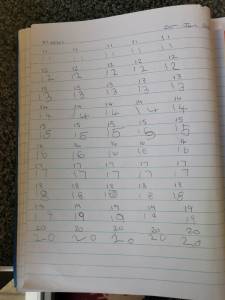 11 11 11 11 11
11 11 11 11 11
12 12 12 12 12
12 12 12 12 12
13 13 13 13 13
13 13 13 13 13
14 14 14 14 14
14 14 14 14 14
15 15 15 15 15
15 15 15 15 15
16 16 16 16 16
17 17 17 17 17
17 17 17 17 17
18 18 18 18 18
18 18 18 18 18
19 19 19 19 19
19 19 19 19 19
20 20 20 20 20
20 20 20 20 20